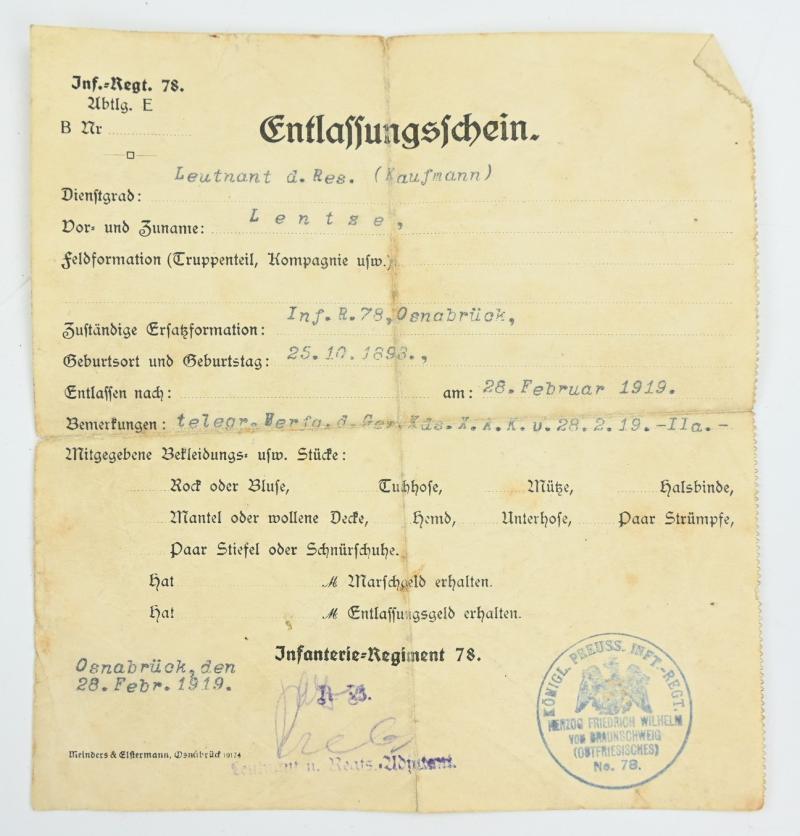 Inf.-Regt. 78.
Abtlg. E
B Nr
Entlassungsschein.
Dienstgrad: Leutnant d. Res. (Kaufmann)
Vor- und Zuname: Lentze,
Feldformation (Truppenteil, Kompagnie usw.)
Zuständige Ersatzformation: Inf. R. 78, Osnabrück,
Geburtsort und Geburtstag: 25.10.1893.,
Entlassen nach: am: 28. Februar 1919.
Bemerkungen: telegr. Verfg. d. Gen. Kds. X. A. K. v. 28.2.19. -IIa.-
Mitgegebene Bekleidungs- usw. Stücke:
Rock oder Bluse, Tuchhose, Mütze, Halsbinde,
Mantel oder wollene Decke, Hemd, Unterhose, Paar Strümpfe,
Paar Stiefel oder Schnürschuhe.
Hat M Marschgeld erhalten.
Hat M Entlassungsgeld erhalten.
Infanterie-Regiment 78.
Osnabrück, den
28. Febr. 1919.
Leutnant u. Regts.-Adjutant.
Meinders & Elstermann, Osnabrück
KÖNIGL. PREUSS. INFT.-REGT.
HERZOG FRIEDRICH WILHELM
VON BRAUNSCHWEIG
(OSTFRIESISCHES)
No. 78.